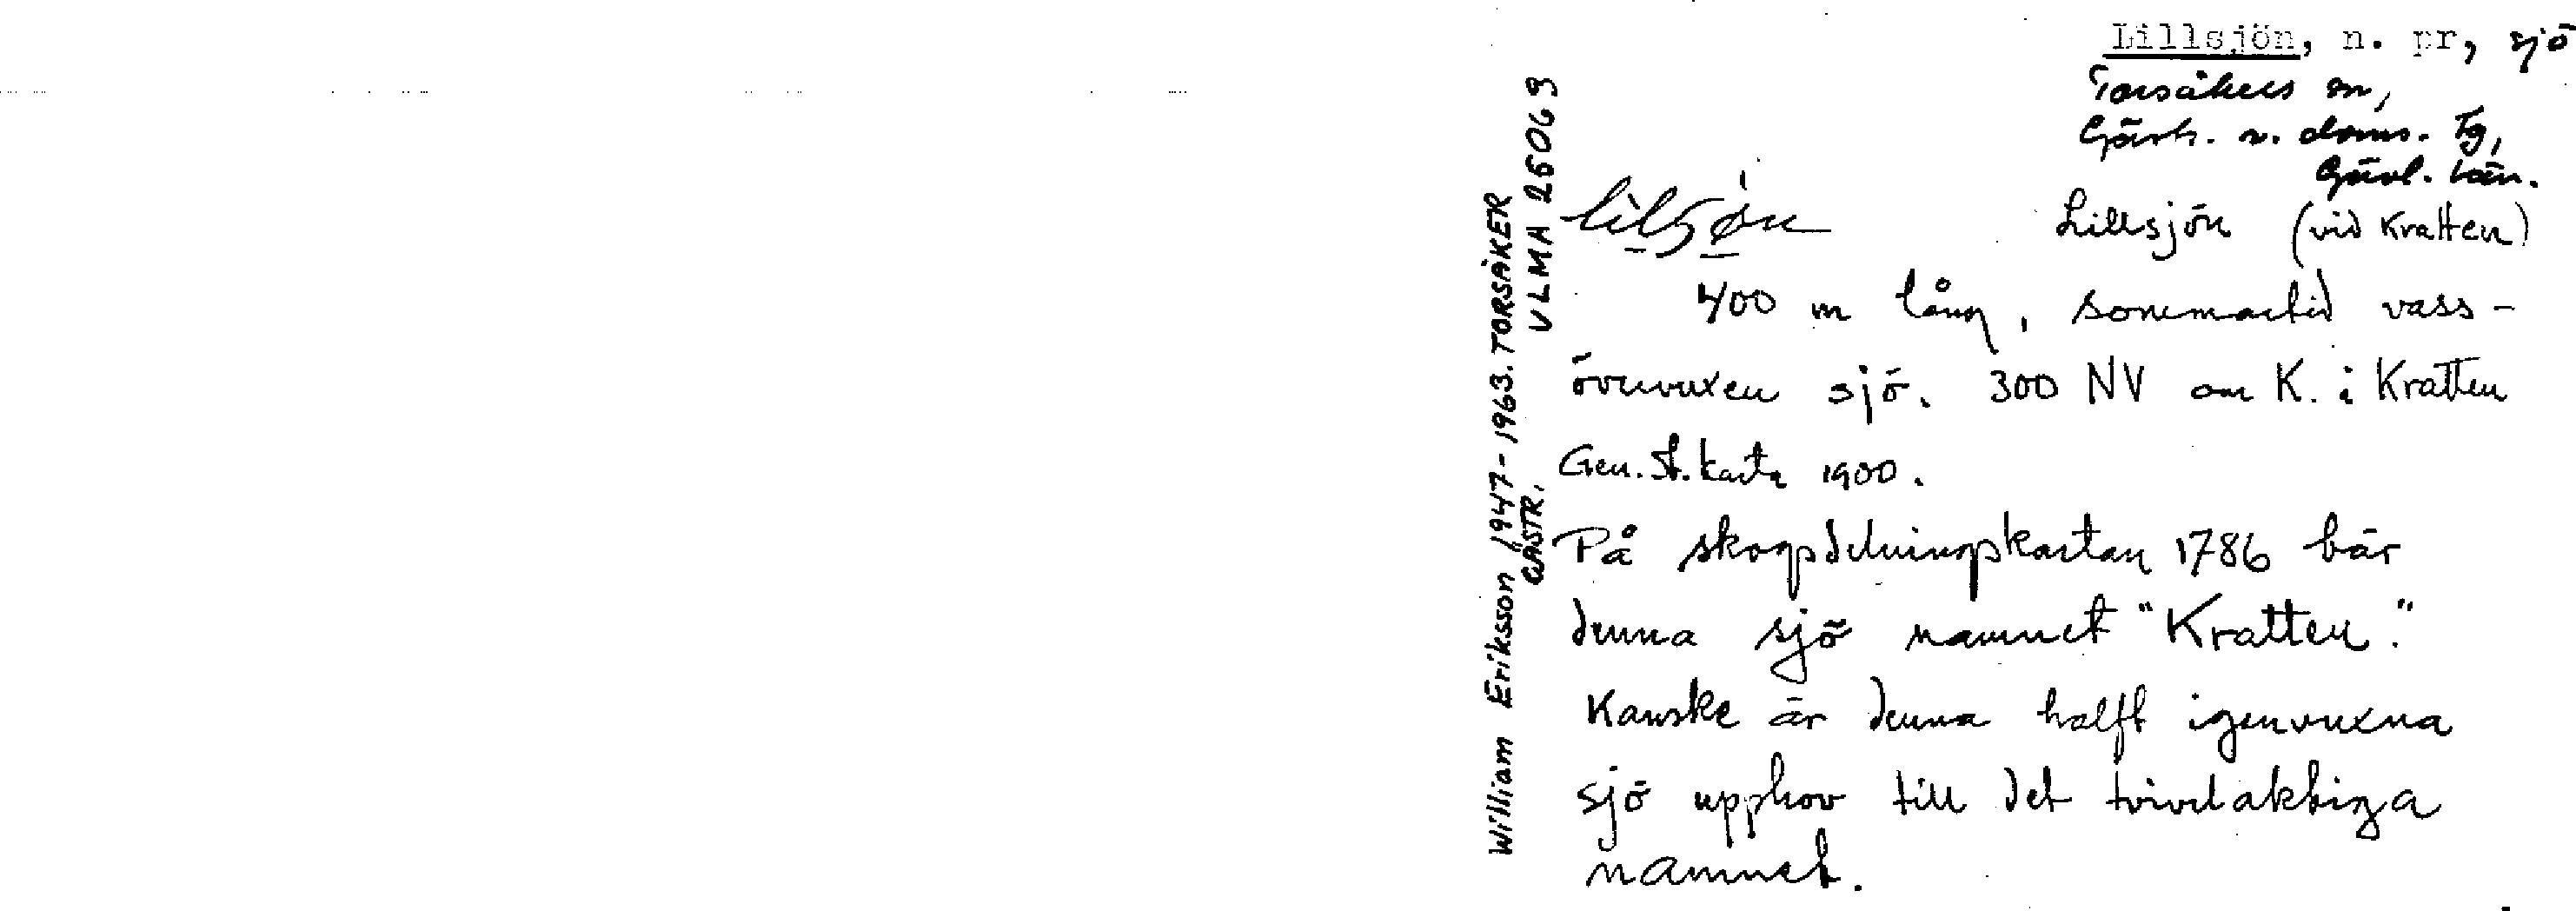 Lillsjön, n. pr, sjö
Torsåkers sn,
Gästr. v. doms. tg,
Gävl. län.
Lillsjön (vid Kratten)
400 m lång, sommartid vass-
övervuxen sjö. 300 NV om K. i Kratten
Gen. St. karta 1900.
På skogsdelningskartan 1786 bär
denna sjö namnet "Kratten."
Kanske är denna halft igenvuxna
sjö upphov till det tvivelaktiga
namnet.
William Eriksson 1947-1963. TORSÅKER
GÄSTR. VLMA 25069